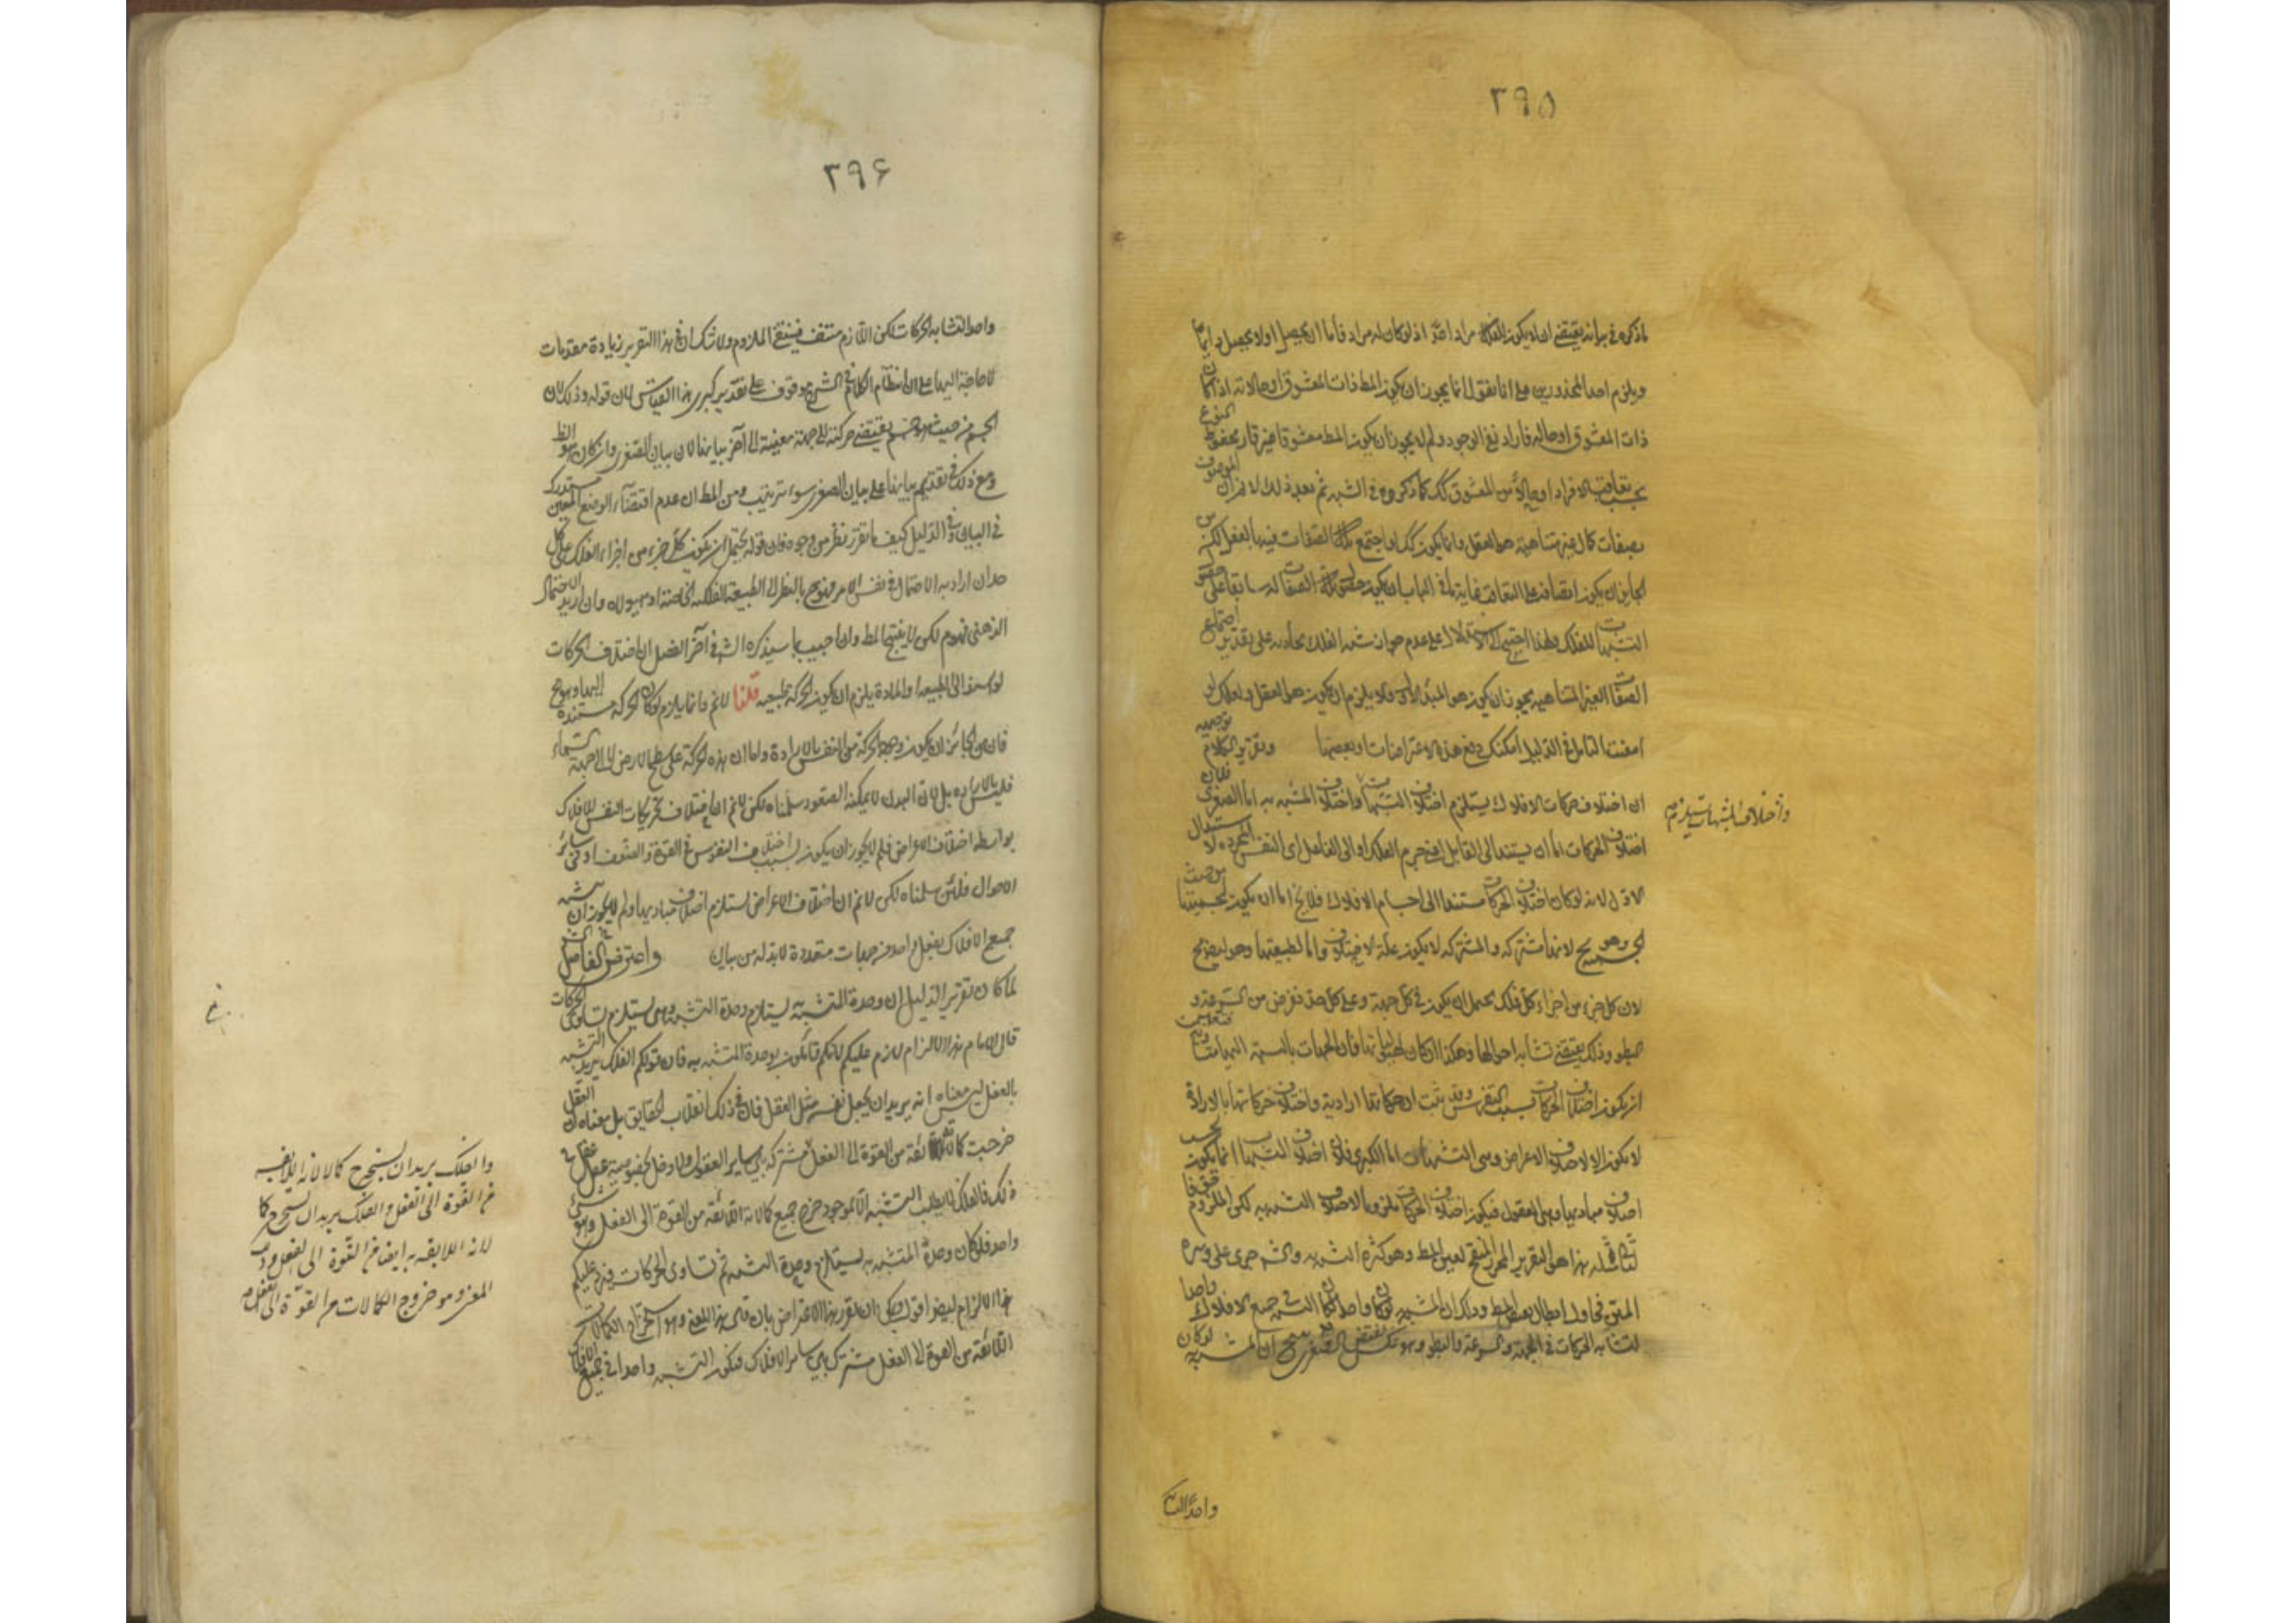 ٣٩٥
ما ذكره في بيانه يقتضي ان لا يكون للفلك مراد اصلا اذ لو كان له مراد فاما ان يحصل اولا يحصل دايما
ويلزم احد المحذورين على انا نقول انما يجوز ان يكون المط ذات المعشوق او حالاته اذا كان
ذات المعشوق او حاله فاراد نيل الوجود ولم لا يجوز ان يكون المط معشوقا غير قار محفوظ النوع
بتعاقب الافراد او حالا من المعشوق كك كما ذكروه في الشبه ثم بعد ذلك لا لزم ان الموصوف
بصفات كمال غير متناهية هو العقل وانما يكون كك لو اجتمع تلك الصفات فيه بالفعل لكن من
الجايز ان يكون اتصافه على التعاقب غاية ما في الباب ان يكون تلك الصفات له سابقا على
التشبهات للفلك ولهذا احتج الى الاستدلال على عدم جواز شبه الفلك على تقدير اجتماع
الصفات الغير المتناهية يجوز ان يكون هو المبدأ الاول ولا يلزم ان يكون هو العقل ولعلك لو
امعنت التأمل في الدليل امكنك دفع هذه الاعتراضات او بعضها وتقرير الكلام توجيه
ان اختلاف حركات الافلاك يستلزم اختلاف التشبهات واختلاف المشبه به اما الصغرى فلان
واختلاف التشبهات يستلزم
اختلاف الحركات اما ان يستند الى القابل اعني جرم الفلك او الى الفاعل اى النفس المجردة لا
الاول لانه لو كان اختلاف الحركات مستندا الى اجسام الافلاك فلا يخ اما ان يكون لجسميتها
وهو مح لانها مشتركة والمشترك لا يكون علة لاختلاف واما لطبيعتها وهو ايضا مح
لان كل جزء من اجزاء كل فلك يحتمل ان يكون في كل جهة وعلى كل حد نفرض من السرعة و
البطو وذلك يقتضي تشابه احوالها وهكذا ان كان لهيولياتها فان الجهات بالنسبة اليها متساوية
ان يكون اختلاف الحركات بسبب النفس وقد ثبت ان حركاتها ارادية واختلاف حركاتها بالارادة
لا يكون الا لاختلاف الاغراض وهي التشبهات اما الكبرى فلان اختلاف التشبهات انما يكون بحسب
اختلاف مباديها وهي العقول فيكون اختلاف الحركات ملزوما لاختلاف التشبه به لكن الملزوم حق
فاللازم مثله هذا هو التقرير المحرر المنتج لعين المط وهو كثرة التشبه به والش جرى على وتيرة
المتن فحاول ابطال نقيض المط وذاك ان المشبه به لو كان واحدا لكان التشبه في جميع الافلاك واحدا
لتشابه الحركات في الجهة والسرعة والبطو وهو عكس نقيض الصغرى ينتج ان المشبه به لو كان
واحدا لتشا
٣٩۶
واحدا لتشابه الحركات لكن اللازم منتف فينتفى الملزوم ولا شك ان في هذا التقرير زيادة مقدمات
لا حاجة اليها على ان انتظام الكلام في الشرح موقوف على تقدير كبرى هذا القياس لان قوله وذلك لان
الجسم من حيث هو جسم يقتضي حركته الى جهة معينة الى آخر بيانها لان بيان الصغرى وان كان هو الظ
ومع ذلك في تقديم بيانها على بيان الصغرى سوء ترتيب ومن المط ان عدم اقتضاء الوضع المعين مستدرك
في البيان وفي الدليل كيف ما تقرر نظر من وجوه فان قوله يحتمل ان يكون كل جزء من اجزاء الفلك على كل
حد ان اراد به الاحتمال في نفس الامر فمنوع بالنظر الى الطبيعة الفلكية الخاصة او هيولاه وان اريد الاحتمال
الذهني فهو م لكن لا ينتج المط وان اجيب بما سيذكره الش في آخر الفصل ان اختلاف الحركات
لو استند الى الطبيعة او المادة يلزم ان يكون الحركة طبيعية قلنا لا نم وانما يلزم لو كان الحركة مستندة اليها وهو مح
فان من الجائز ان يكون وجه الحركة من النفس بالارادة ولما ان هذه الحركة على سطح الارض لا الى جهة السماء
فليس بالارادة بل لان البدن لا يمكنه الصعود سلمناه لكن لا نم ان اختلاف تحريكات النفس للافلاك
بواسطة اختلاف الاغراض فلم لا يجوز ان يكون بسبب اختلاف النفوس في القوة والضعف او في سائر
الاحوال فلئن سلمناه لكن لا نم ان اختلاف الاغراض يستلزم اختلاف مباديها ولم لا يجوز ان
جميع الافلاك بعقل واحد من جهات متعددة لا بد له من بيان واعترض الفاضل
لما كان تقرير الدليل ان وحدة المتشبه به يستلزم وحدة التشبه وهي يستلزم تساوى الحركات
قال الامام هذا الالزام لازم عليكم لانكم قائلون بوحدة المتشبه به فان قولكم الفلك يريد التشبه
بالعقل ليس معناه انه يريد ان يجعل نفسه مثل العقل فان في ذلك انقلاب الحقايق بل معناه ان العقل
خرجت كمالاته اللائقة من القوة الى الفعل مشتركة بين سائر العقول ولا دخل لخصوصية عقل عقل في
ذلك فالفلك انما يطلب التشبه الا لموجود خرج جميع كمالاته اللائقة من القوة الى الفعل وهو شئ
واحد فلو كان وحدة المتشبه به يستلزم وحدة التشبه ثم تساوى الحركات فيرد عليكم
هذا الالزام ايضا اقول ويمكن ان نقرر هذا الاعتراض بان قال هذا المعنى وهو استخراج الكمالات
اللائقة من القوة الى الفعل مشترك بين سائر الافلاك فيكون التشبه واحدا في جميع الافلاك
والفلك يريد ان يستخرج كمالاته اللايقة
من القوة الى الفعل والفلك يريد ان يستخرج كما
لاته اللايقة به ايضا من القوة الى الفعل
المعنى وهو خروج الكمالات من القوة الى الفعل